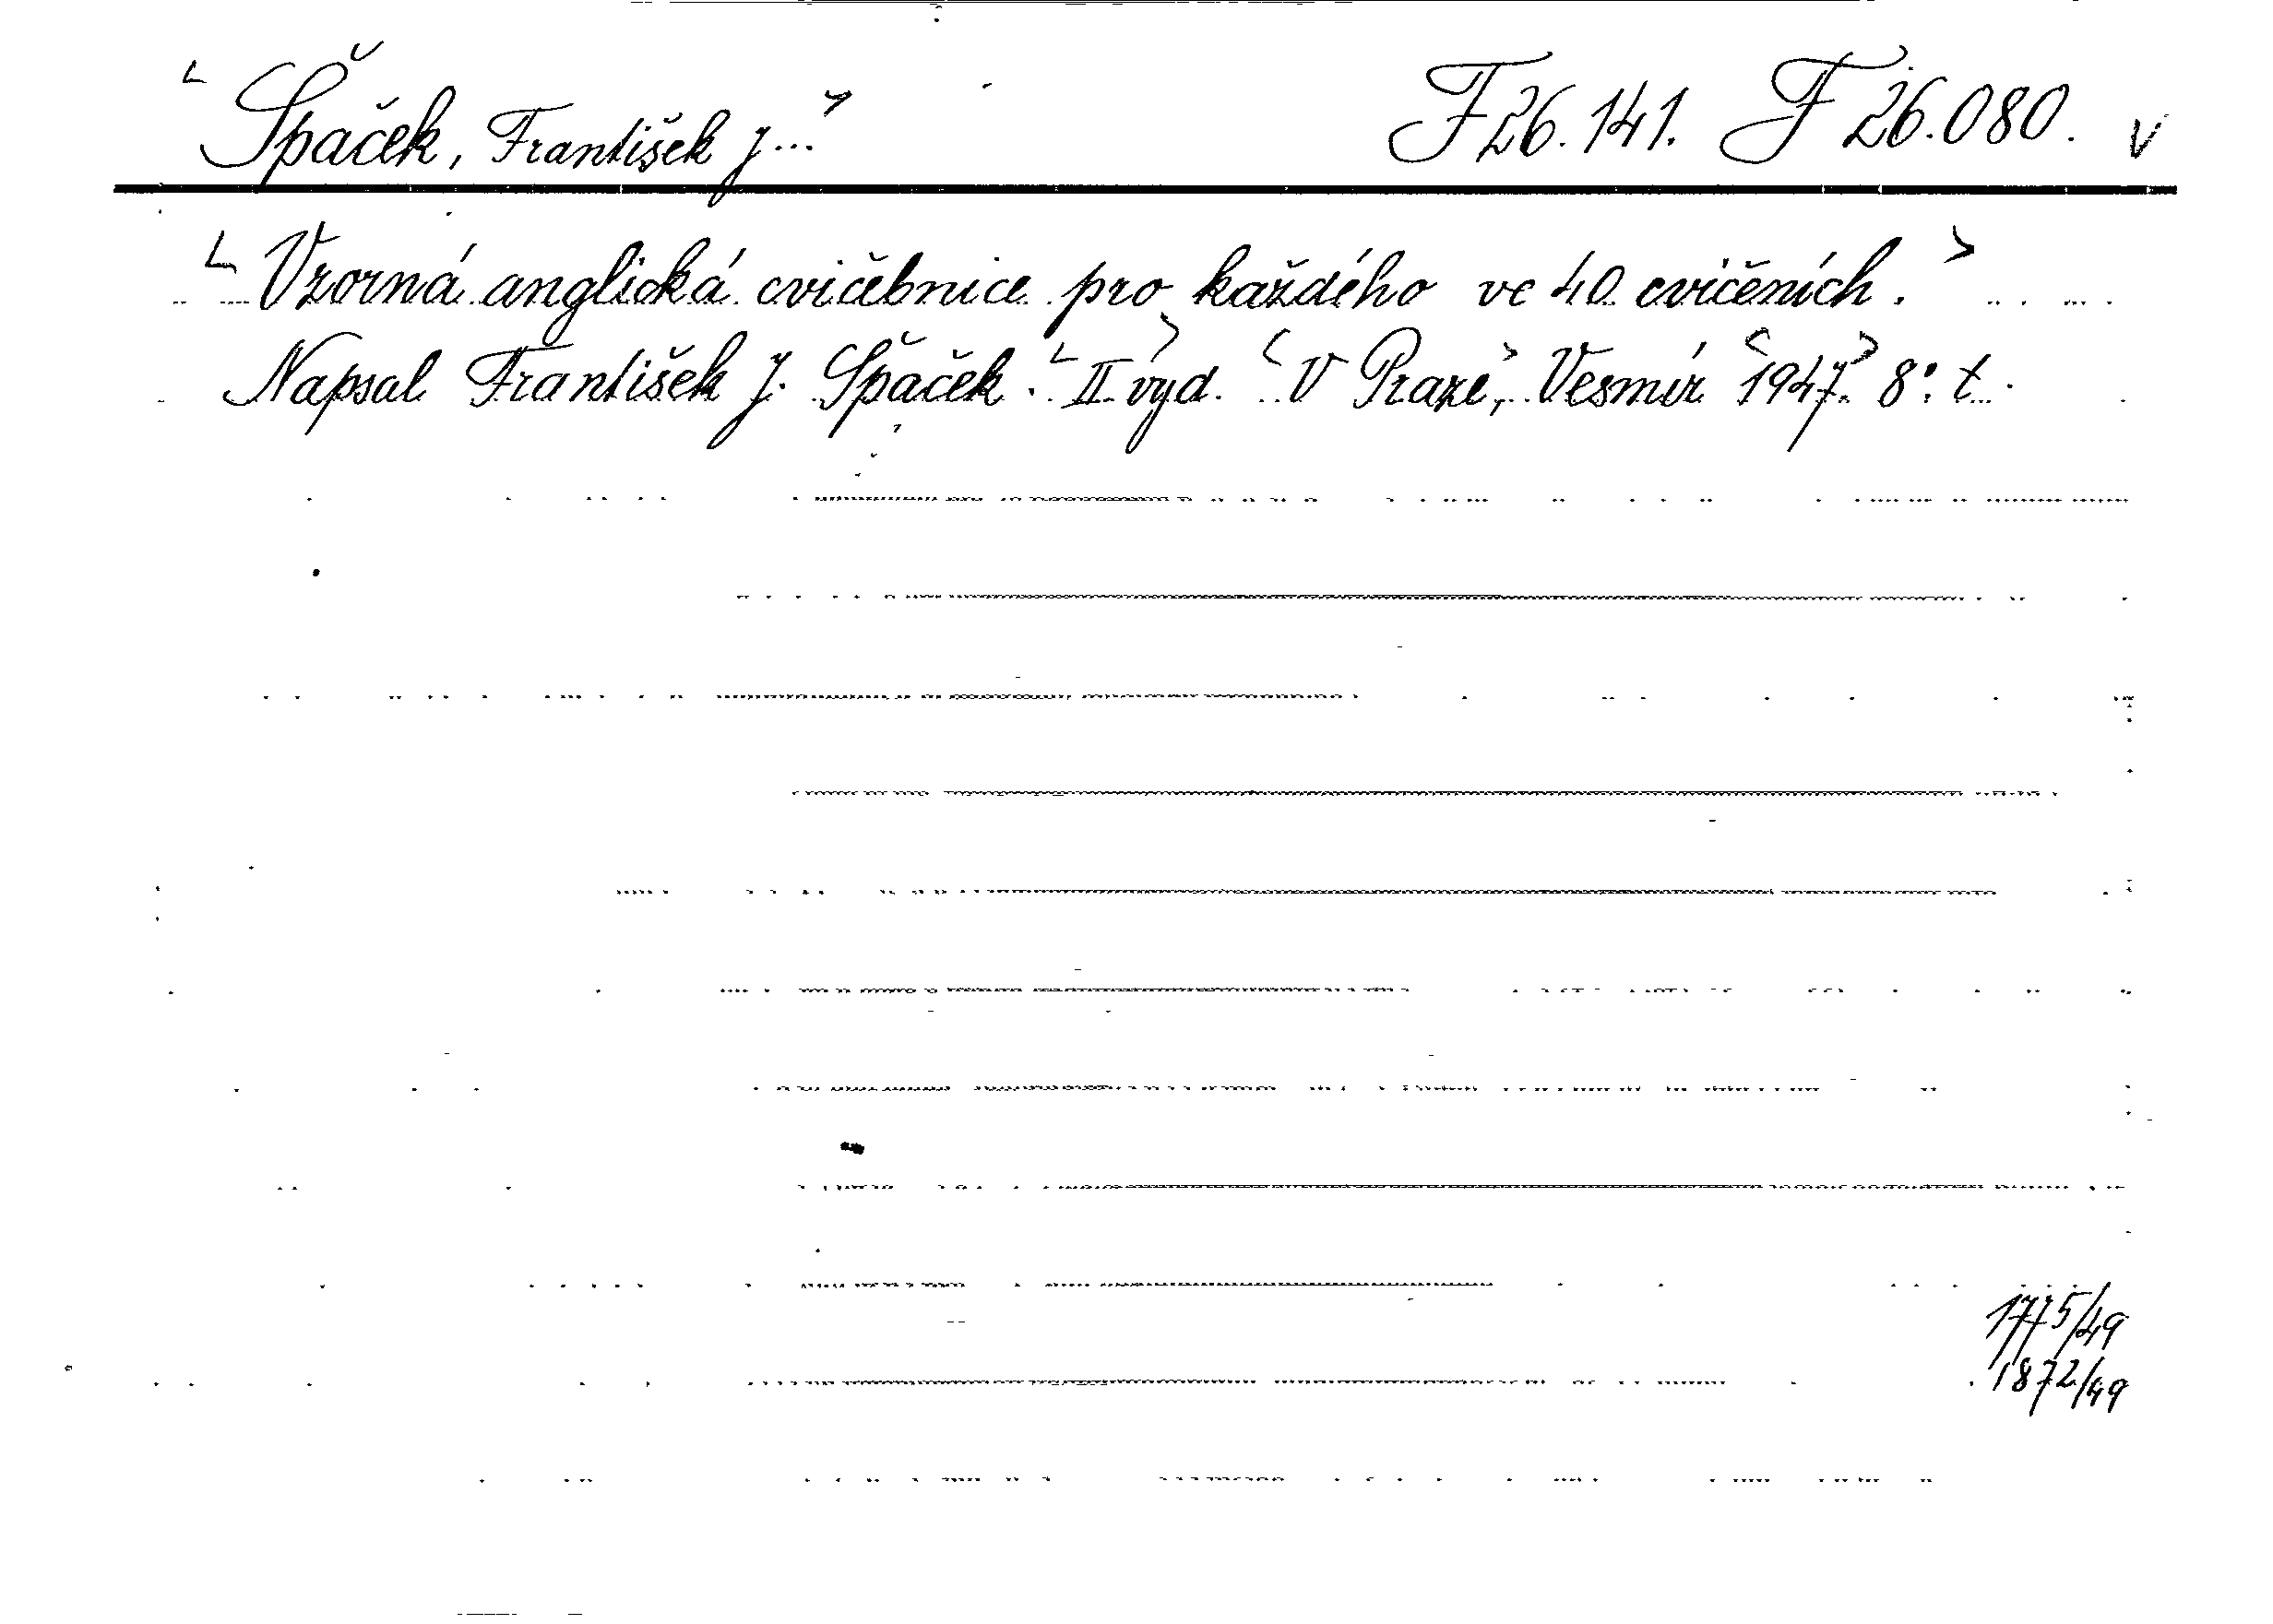 Špaček, František J... F 26.141. F 26.080. v
Vzorná anglická cvičebnice pro každého ve 40 cvičeních.
Napsal František J. Špaček. II. vyd. V Praze, Vesmír 1947. 8°. t.
1775/49
1872/49